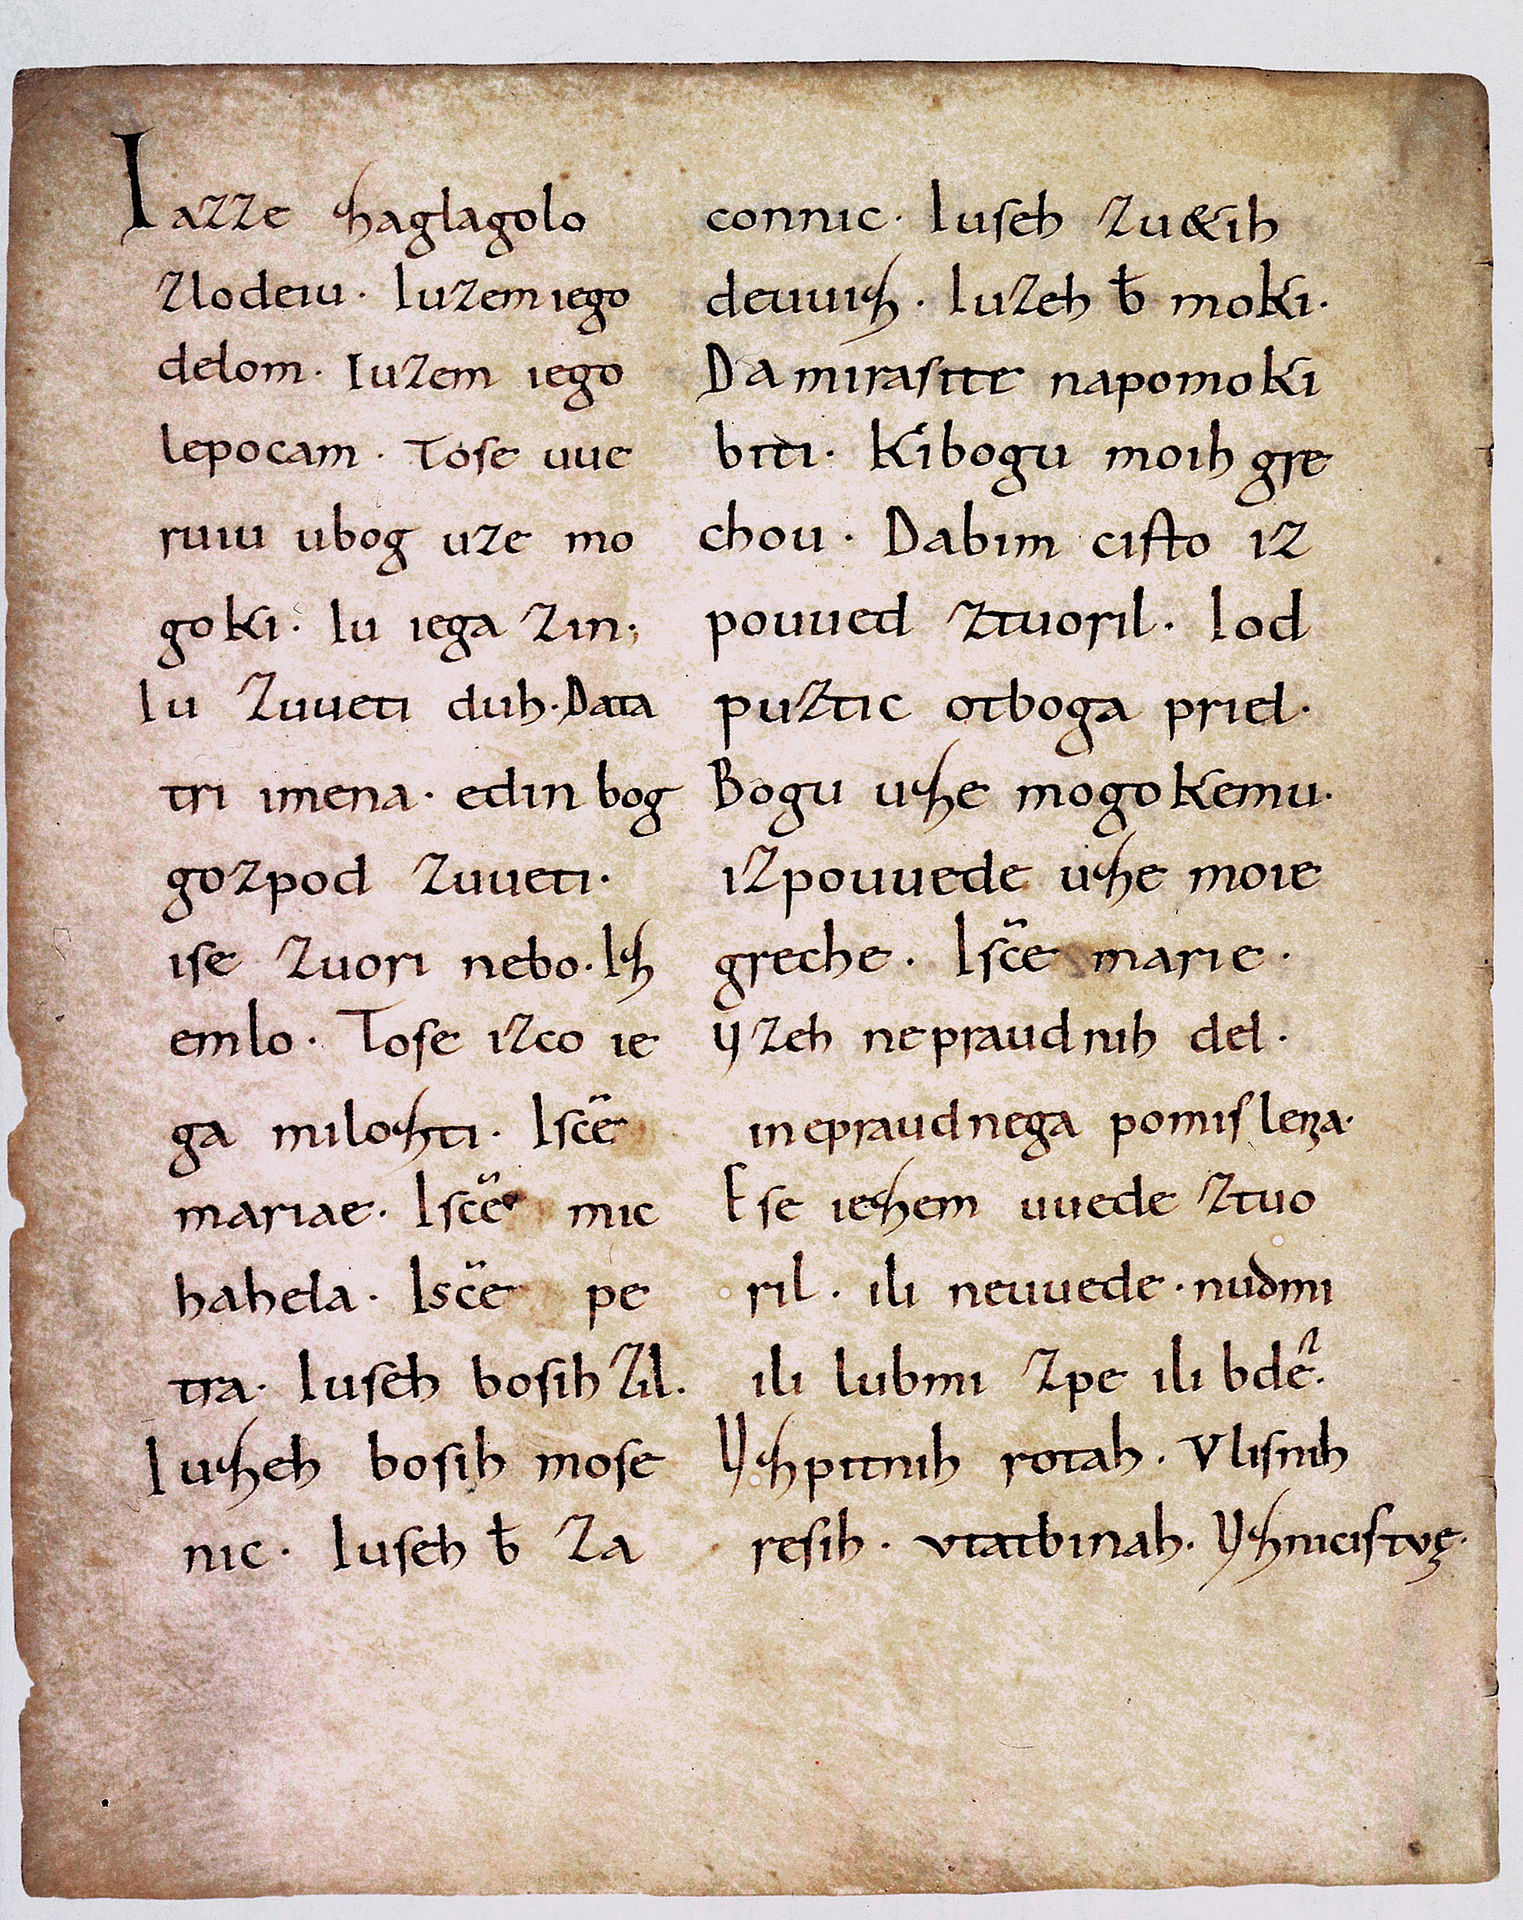 Iazze zaglagolo
zlodeiu· Iuzem iego
delom· Iuzem iego
lepocam· Tose uue
ruiu ubog uze mo
goki· Iu iega zin·,
Iu zuueti duh· Data
tri imena· edin bog
gozpod zuueti·
ise zuori nebo· Iz
emlo· Tose izco ie
ga milozti· Iscē
mariae· Iscē mic
hahela· Iscē pe
tra· Iuseh bosih zil·
Iuzeh bosih mose
nic· Iuseh ƀ za
connic· Iuseh zu&ih
deuuiz· Iuzeh ƀ moki·
Da mirasite napomoki
biti· Kibogu moih gre
chou· Dabim cisto iz
pouued ztuoril· Iod
puztic otboga priel·
Bogu uze mogokemu·
izpouuede uze moie
greche· Iscē marie·
Vzeh nepraudnih del·
inepraudnega pomislenza·
Ese iezem uuede ztuo
ril· ili neuuede· nudmi
ili lubmi zpe ili bde·
Vzpitnih rotah· Vlisnih
resih· vtatbinah· Vznicistvę·